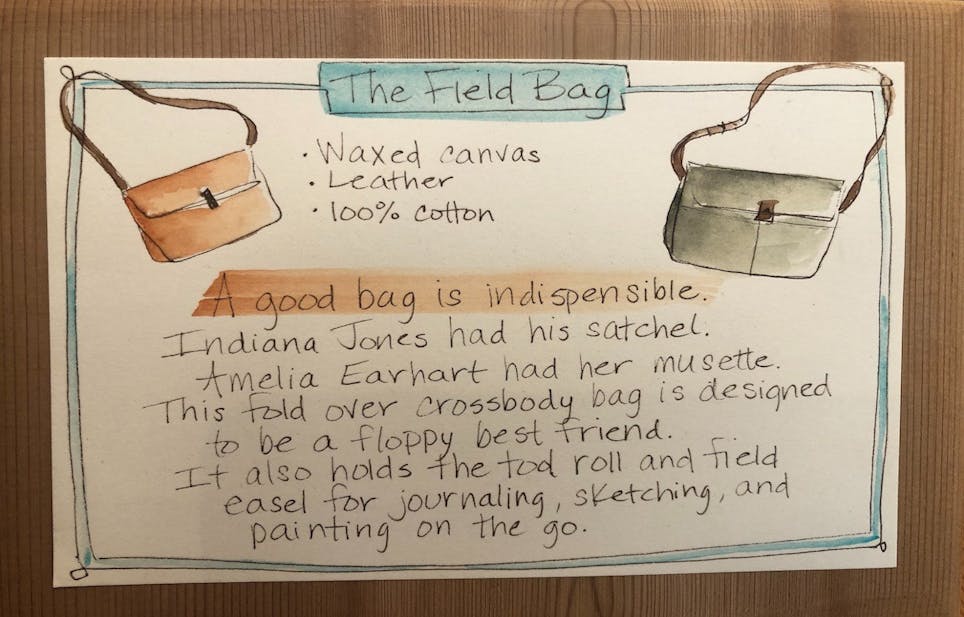 The Field Bag
· Waxed canvas
· Leather
· 100% cotton
A good bag is indispensible.
Indiana Jones had his satchel.
Amelia Earhart had her musette.
This fold over crossbody bag is designed
to be a floppy best friend.
It also holds the tod roll and field
easel for journaling, sketching, and
painting on the go.